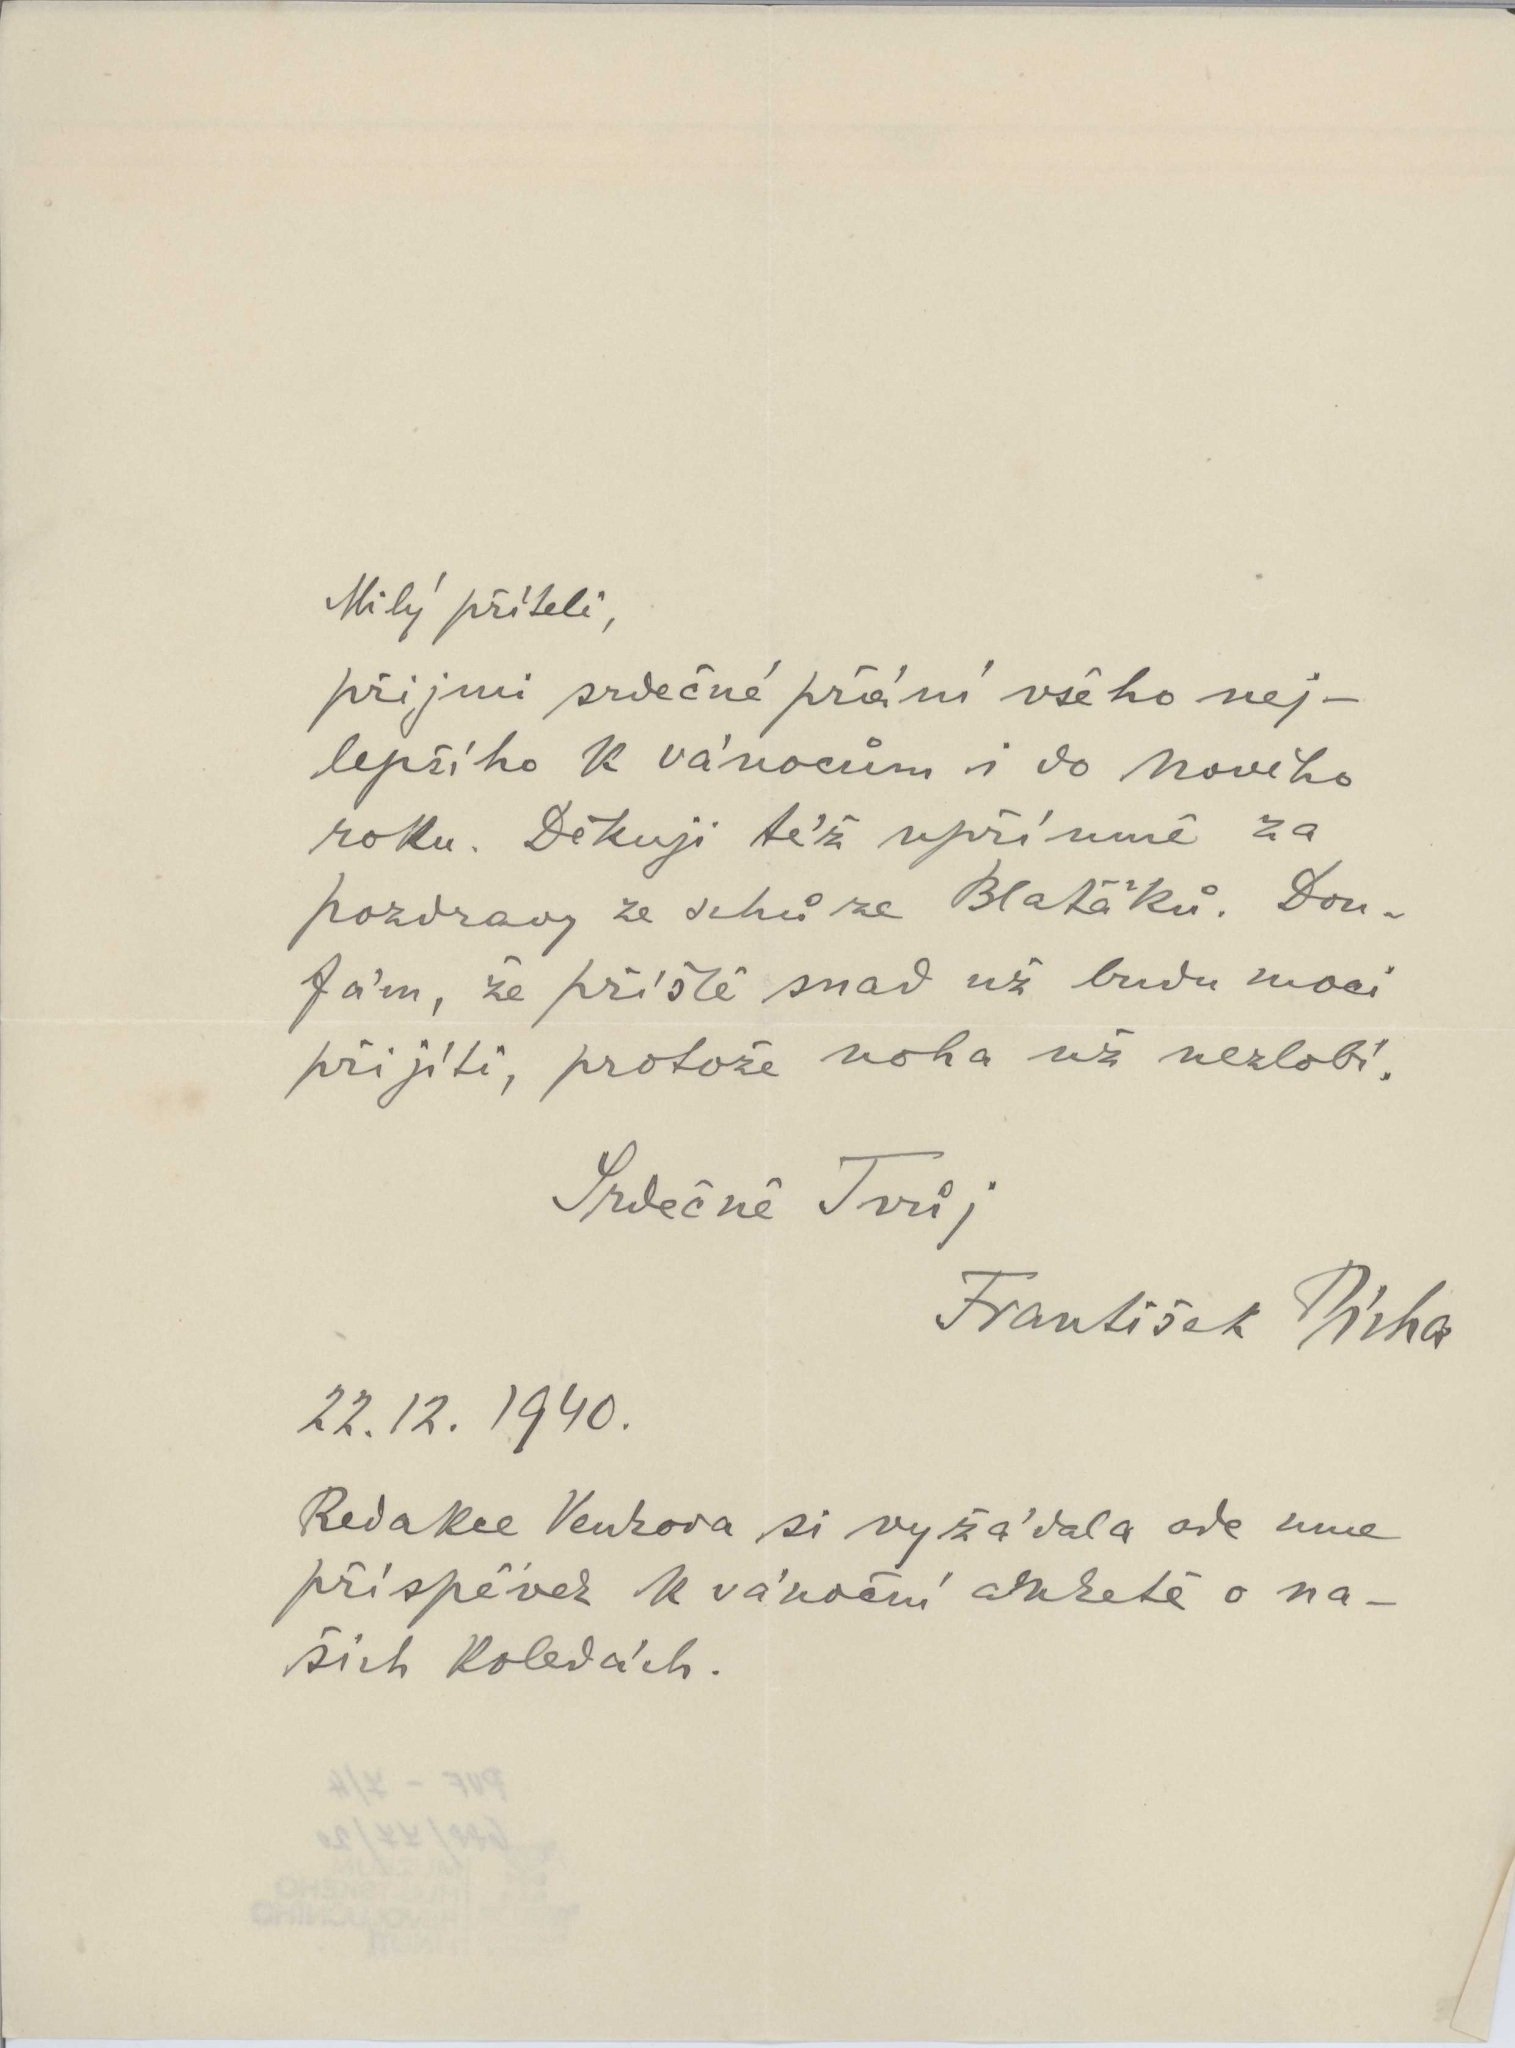 Milý příteli,
přijmi srdečné přání všeho nej-
lepšího k vánocům i do nového
roku. Děkuji též upřímně za
pozdravy ze schůze Blaťáků. Dou-
fám, že příště snad už budu moci
přijíti, protože noha už nezlobí.
Srdečně Tvůj
František Pícha
22.12.1940.
Redakce Venkova si vyžádala ode mne
příspěvek k vánoční anketě o na-
šich koledách.